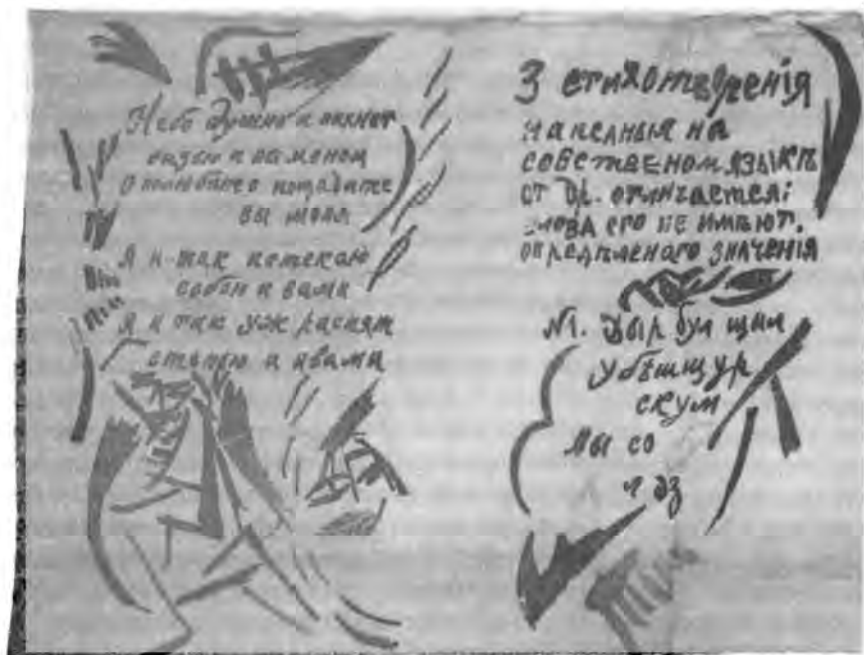 Небо душно и пахнет
сизью и выменом
О полюбите пощадите
вы меня
Я и так истекаю
собою и вами
Я и так уж распят
степью и ивами
3 стихотворенія
написаныя на
собственом языкѣ
от др. отличается:
слова его не имѣют.
опредѣленаго значенія
№1. Дыр бул щыл
убѣшщур
скум
вы со